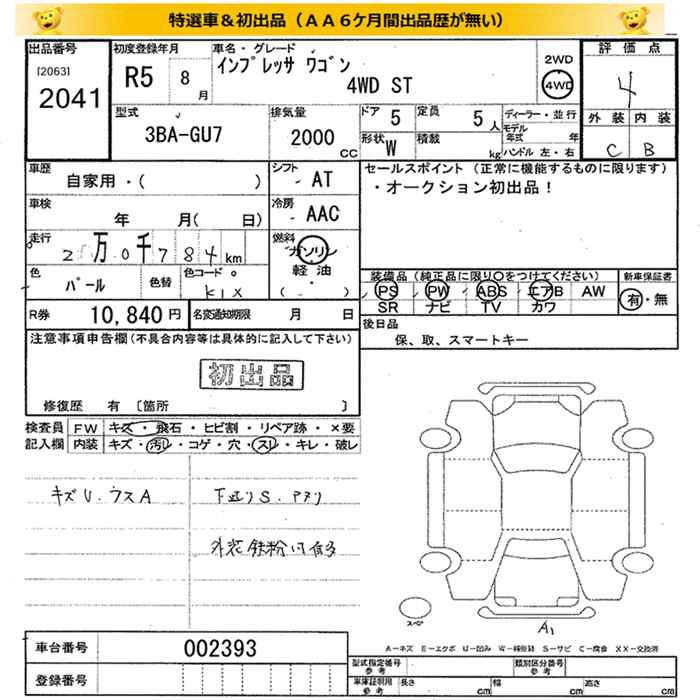 特選車＆初出品（ＡＡ６ケ月間出品歴が無い）
出品番号
[2063]
2041
初度登録年月
R5 8 月
車名・グレード
インプレッサ ワゴン
4WD ST
2WD
4WD
評価点
4
外装 内装
C B
型式
3BA-GU7
排気量
2000 CC
ドア 5
定員 5 人
形状 W
積載 kg
ディーラー・並行
モデル年式 年
ハンドル 左・右
車歴
自家用・( )
シフト AT
車検
年 月( 日)
冷房 AAC
走行
2 万 0 千 7 8 4 km
燃料
ガソリン
軽油
( ・ )
色 パール
色替
色コード
K1X
R券 10,840 円
名変通知期限 月 日
セールスポイント（正常に機能するものに限ります）
・オークション初出品！
装備品（純正品に限り○をつけてください）
PS PW ABS エアB AW
SR ナビ TV カワ
新車保証書
有・無
後日品
保、取、スマートキー
注意事項申告欄(不具合内容等は具体的に記入して下さい)
初出品
修復歴 有 〔箇所 〕
検査員記入欄
FW キズ・飛石・ヒビ割・リペア跡・×要
内装 キズ・汚レ・コゲ・穴・スレ・キレ・破レ
キズU.ウスA
下廻りS.
外装鉄粉
スペア
A1
A－キズ E－エクボ U－凹み W－補修跡 S－サビ C－腐食 XX－交換済
車台番号 002393
登録番号
型式指定番号 参考
類別区分番号 参考
車庫証明用 参考
長さ cm 幅 cm 高さ cm